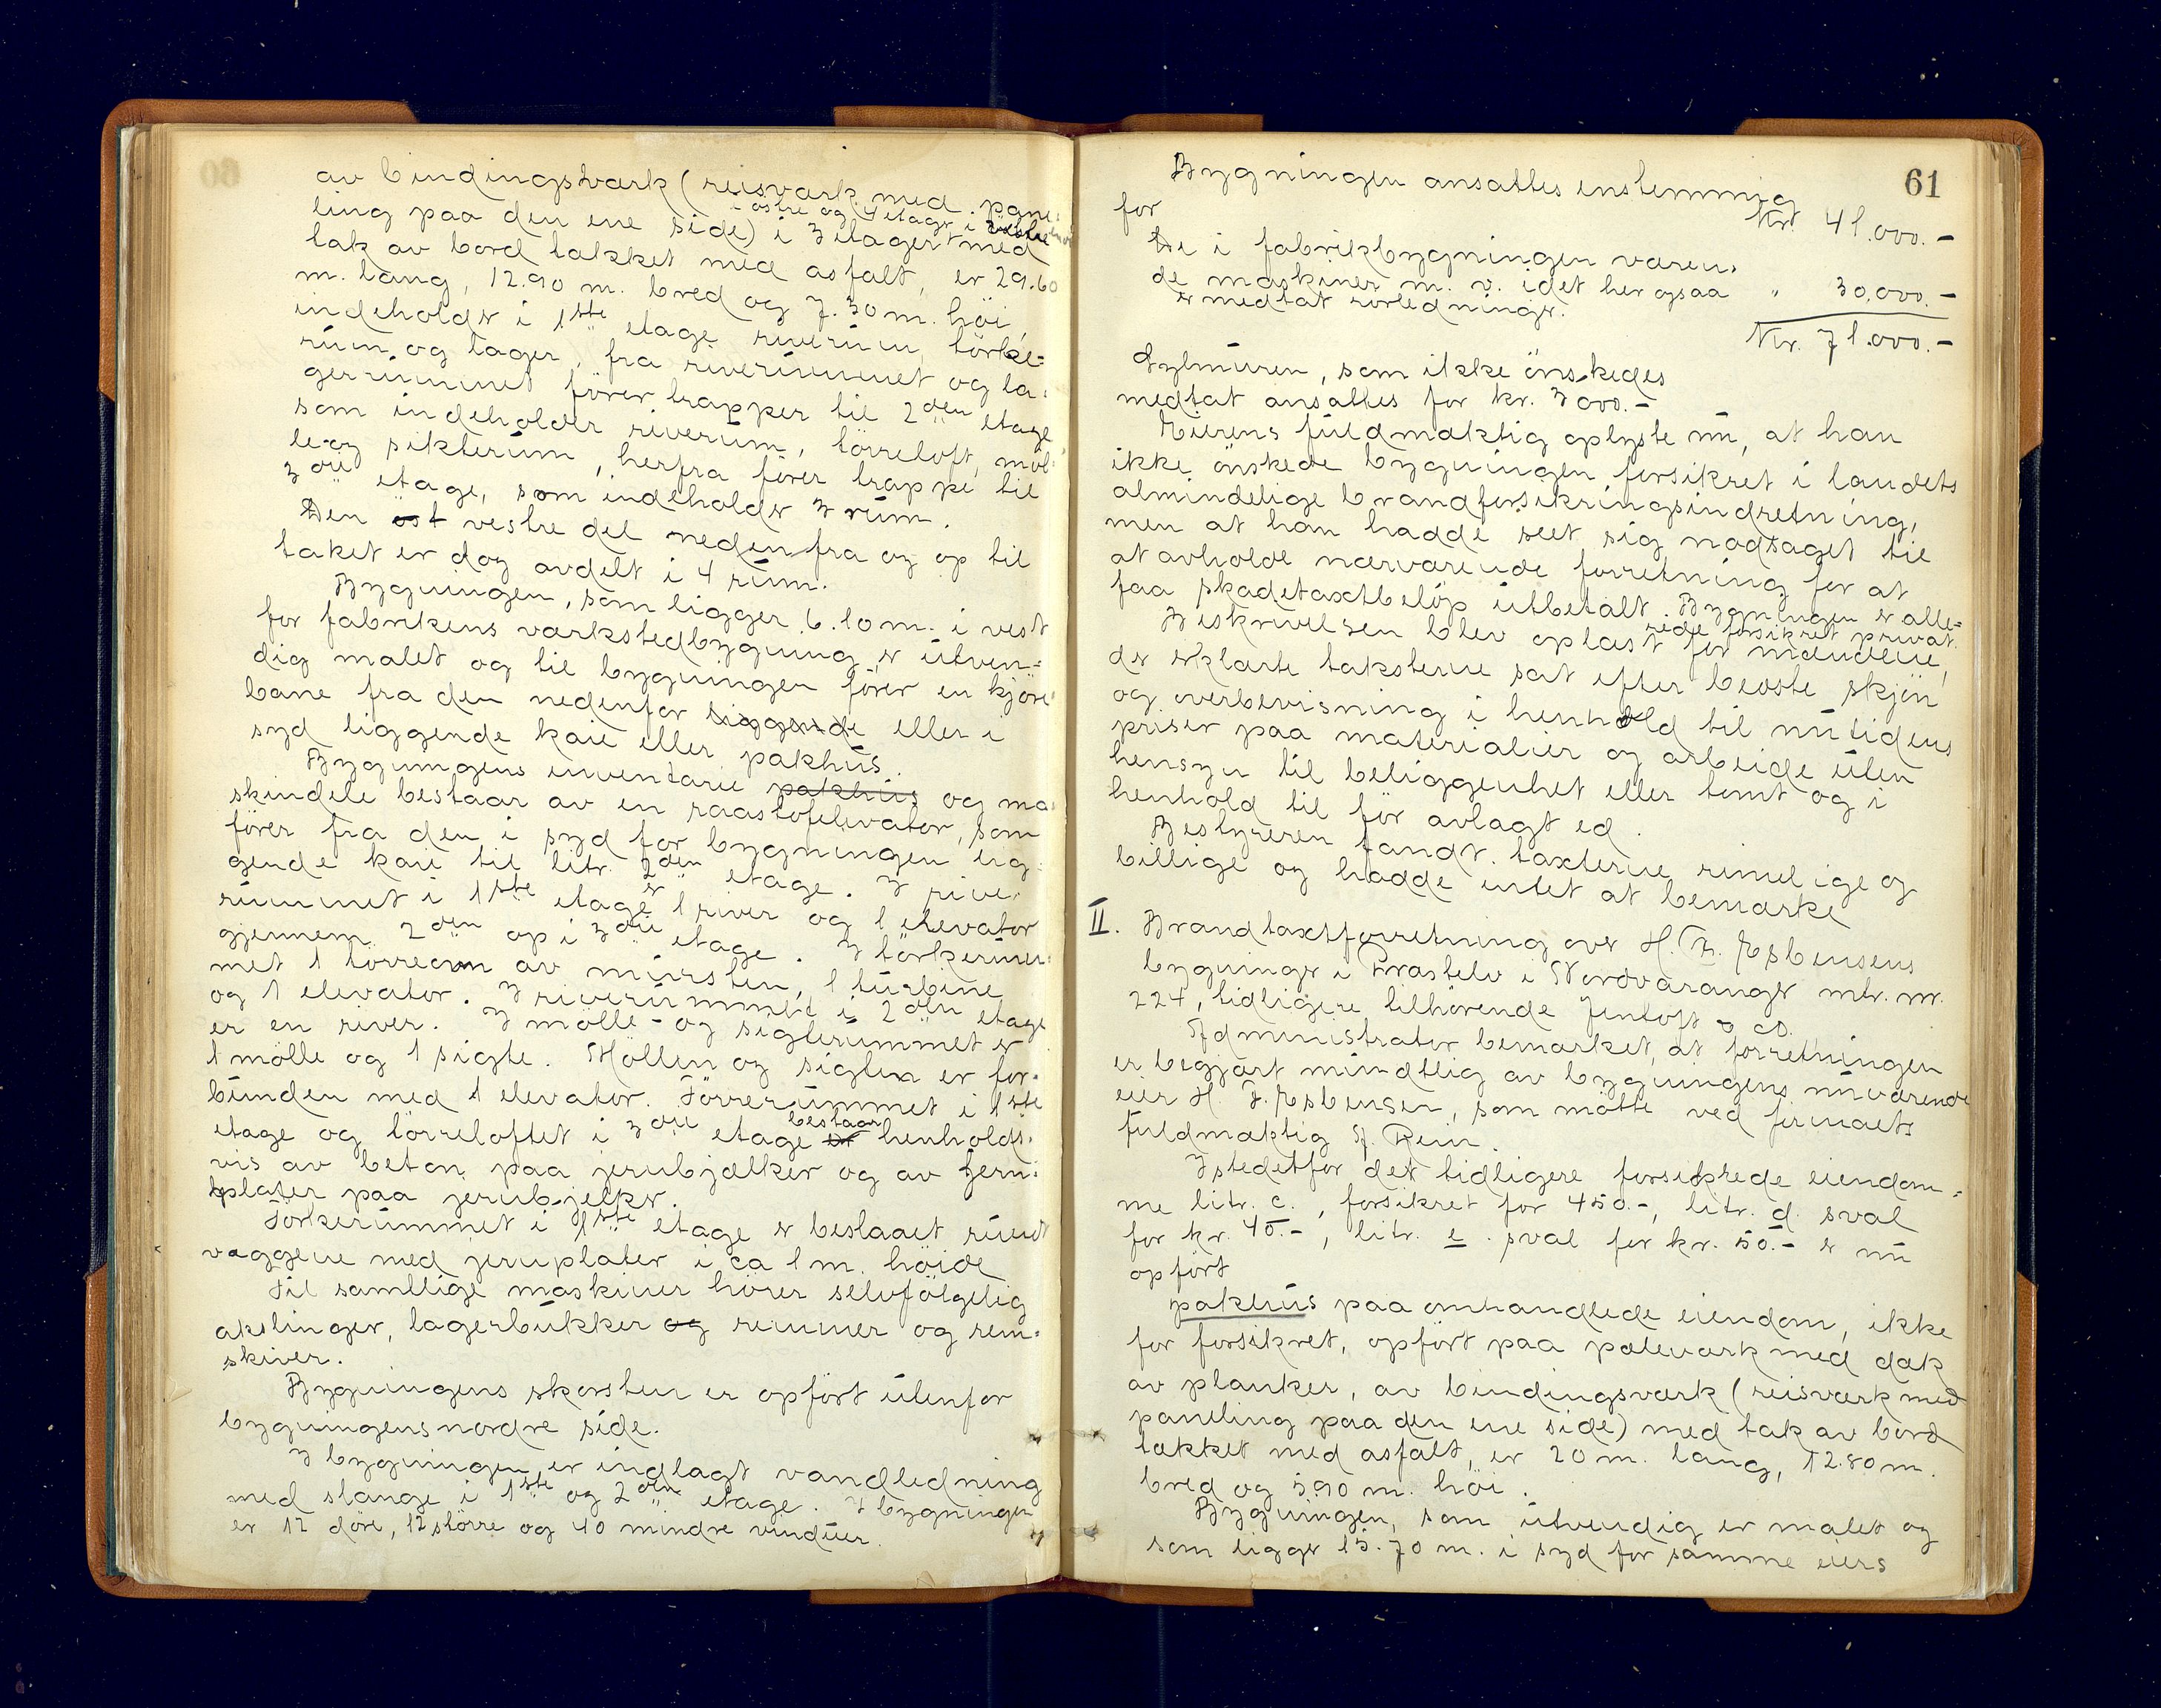 av bindingsværk (reisværk med pane-
- östre og 4 etager i vestre
ling paa den ene side) i 3 etager med
tak av bord tækket med asfalt, er 29.60
m. lang, 12.90 m. bred og 7.30 m. höi,
indeholder i 1ste etage riverum, törke-
rum og lager, fra riverummet og la-
gerrummet förer trapper til 2den etage
som indeholder riverum, törreloft, möl-
le og sikterum, herfra förer trappe til
3die etage, som indeholder 3 rum.
Den öst vestre del nedenfra og op til
taket er dog avdelt i 4 rum.
Bygningen, som ligger 6.10 m. i vest
for fabrikens værkstedbygning er utven-
dig malet og til bygningen förer en kjöre-
bane fra den nedenfor liggende eller i
syd liggende kaie eller pakhus.
Bygningens inventarie pakhus og ma-
skindele bestaar av en raastofelevator, som
förer fra den i syd for bygningen lig-
gende kaie til litr. 2den etage. I rive-
rummet i 1ste etage er 1 river og 1 elevator
gjennem 2den op i 3die etage. I törkerum-
met 1 törreovn av mursten, 1 turbine
og 1 elevator. I riverummet i 2den etage
er en river. I mölle- og sigterummet er
1 mölle og 1 sigte. Möllen og sigten er for-
bunden med 1 elevator. Törrerummet i 1ste
etage og törreloftet i 3die etage er bestaar henholds-
vis av beton paa jernbjælker og av jern-
plater paa jernbjelker.
Törkerummet i 1ste etage er beslaaet rundt
væggene med jernplater i ca 1 m. höide
Til samtlige maskiner hörer selvfölgelig
akslinger, lagerbukker og remmer og rem-
skiver.
Bygningens skorsten er opfört utenfor
bygningens nordre side.
I bygningen er indlagt vandledning
med slange i 1ste og 2den etage. I bygningen
er 12 döre, 12 större og 40 mindre vinduer.
61
Bygningen ansattes enstemmig
for Kr. 41.000.-
De i fabrikbygningen væren-
de maskiner m. v. idet her ogsaa " 30.000.-
er medtat rörledninger.
Kr. 71.000.-
Gylmuren, som ikke önskedes
medtat ansattes for kr. 3000.-
Eierens fuldmæktig oplyste nu, at han
ikke önskede bygningen forsikret i landets
almindelige brandforsikringsindretning,
men at han hadde seet sig nödsaget til
at avholde nærværende forretning for at
faa skadetaxtbelöp utbetalt. Bygningen er alle-
rede forsikret privat.
Beskrivelsen blev oplæst for mændene,
der erklærte taksterne sat efter bedste skjön
og overbevisning i henhold til nutidens
priser paa materialier og arbeide uten
hensyn til beliggenhet eller tomt og i
henhold til för avlagt ed.
Bestyreren fandt taxterne rimelige og
billige og hadde intet at bemærke
II. Brandtaxtforretning over H. F. Esbensens
bygninger i Præstelv i Nordvaranger mtr. nr.
224, tidligere tilhörende Jentoft & co.
Administrator bemærket, at forretningen
er begjært mundtlig av bygningens nuværende
eier H. F. Esbensen, som mötte ved firmaets
fuldmæktig A. Rein.
Istedetfor det tidligere forsikrede eiendom-
me litr. c., forsikret for 450.-, litr. d. sval
for kr. 40.-, litr. e. sval for kr. 50.- er nu
opfört
pakhus paa omhandlede eiendom, ikke
för forsikret, opfört paa pæleværk med dæk
av planker, av bindingsværk (reisværk med
paneling paa den ene side) med tak av bord
tækket med asfalt, er 20 m. lang, 12.80 m.
bred og 5.90 m. höi.
Bygningen, som utvendig er malet og
som ligger 15.70 m. i syd for samme eiers